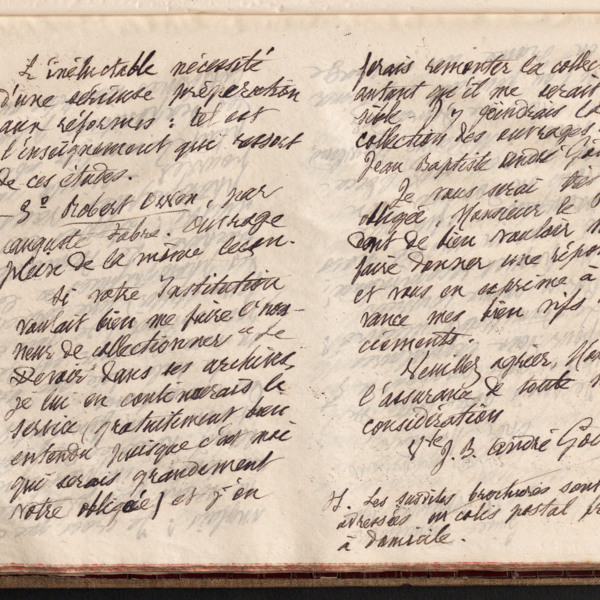 L'inéluctable nécessité
d'une sérieuse préparation
aux réformes : tel est
l'enseignement qui ressort
de ces études.
— 3º Robert Owen, par
Auguste Fabre. Ouvrage
plein de la même leçon.
Si votre Institution
voulait bien me faire l'hon-
neur de collectionner "Le
Devoir" dans ses archives,
je lui en continuerais le
service (gratuitement bien
entendu puisque c'est moi
qui serais grandement
votre obligée) et j'en
ferais remonter la collec
autant qu'il me serait
sible. J'y joindrais la
collection des ouvrages
Jean Baptiste André Go
Je vous serai très
obligée, Monsieur le
dent de bien vouloir
faire donner une répon
et vous en exprime à
vance mes bien vifs
ciements.
Veuillez agréer, Mon
l'assurance de toute
considération
Vve J. B. André Go
J. Les susdites brochures sont
adressées en colis postal
à domicile.